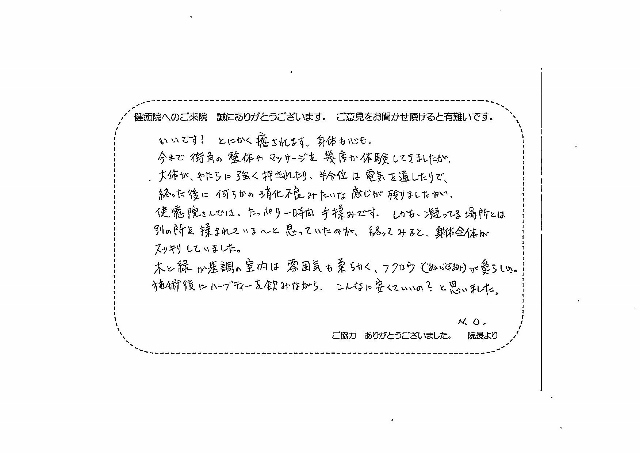 健癒院へのご来院　誠にありがとうございます。　ご意見をお聞かせ頂けると有難いです。
いいです！とにかく癒されます。身体も心も。
今まで街角の整体やマッサージを幾度か体験してきましたが、
大体が、やたらに強く押されたり、半分位は電気を通したりで、
終った後に何らかの消化不良みたいな感じが残りましたが、
健癒院さんでは、たっぷり一時間手揉みです。しかも、凝ってる場所とは
別の所を揉まれている〜と思っていたのが、終ってみると、身体全体が
スッキリしていました。
木と緑が基調の室内は雰囲気も柔らかく、フクロウ(ぬいぐるみ)が愛らしい。
施術後にハーブティーを飲みながら、こんなに安くていいの？と思いました。
N.O.
ご協力　ありがとうございました。　院長より